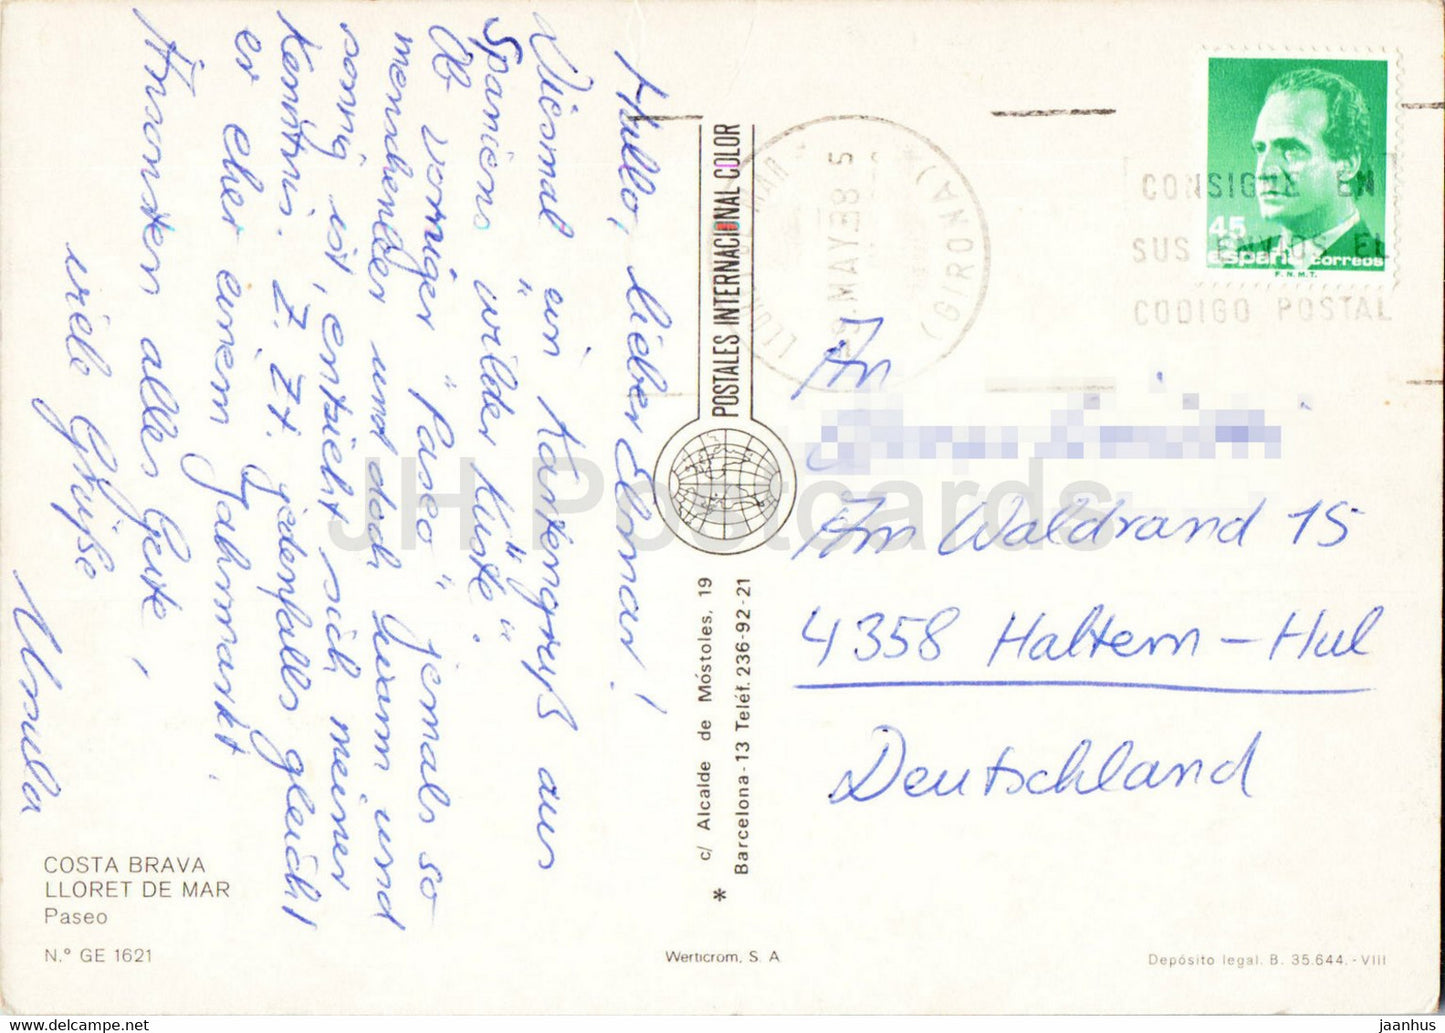 Hallo, lieber Elmar!
Diesmal ein Kartengruß aus
Spaniens "wilder Küste".
Ob voriger "Paseo" jemals so
menschenleer und doch warm und
sonnig ist, entzieht sich meiner
Kenntnis. Z. Zt. jedenfalls gleicht
er eher einem Jahrmarkt.
Ansonsten alles Gute,
viele Grüße
Ursula
COSTA BRAVA
LLORET DE MAR
Paseo
N.º GE 1621
POSTALES INTERNACIONAL COLOR
* c/ Alcalde de Móstoles, 19
Barcelona-13 Teléf. 236-92-21
Werticrom, S. A
LLORET DE MAR
MAY 88 5
(GIRONA)
CONSIGNE EN
SUS ENVIOS EL
CODIGO POSTAL
45
españa correos
F.N.M.T.
An
Am Waldrand 15
4358 Haltern-Hul
Deutschland
Depósito legal. B. 35.644.-VIII
JH Postcards
hippostcard.com jaanhus